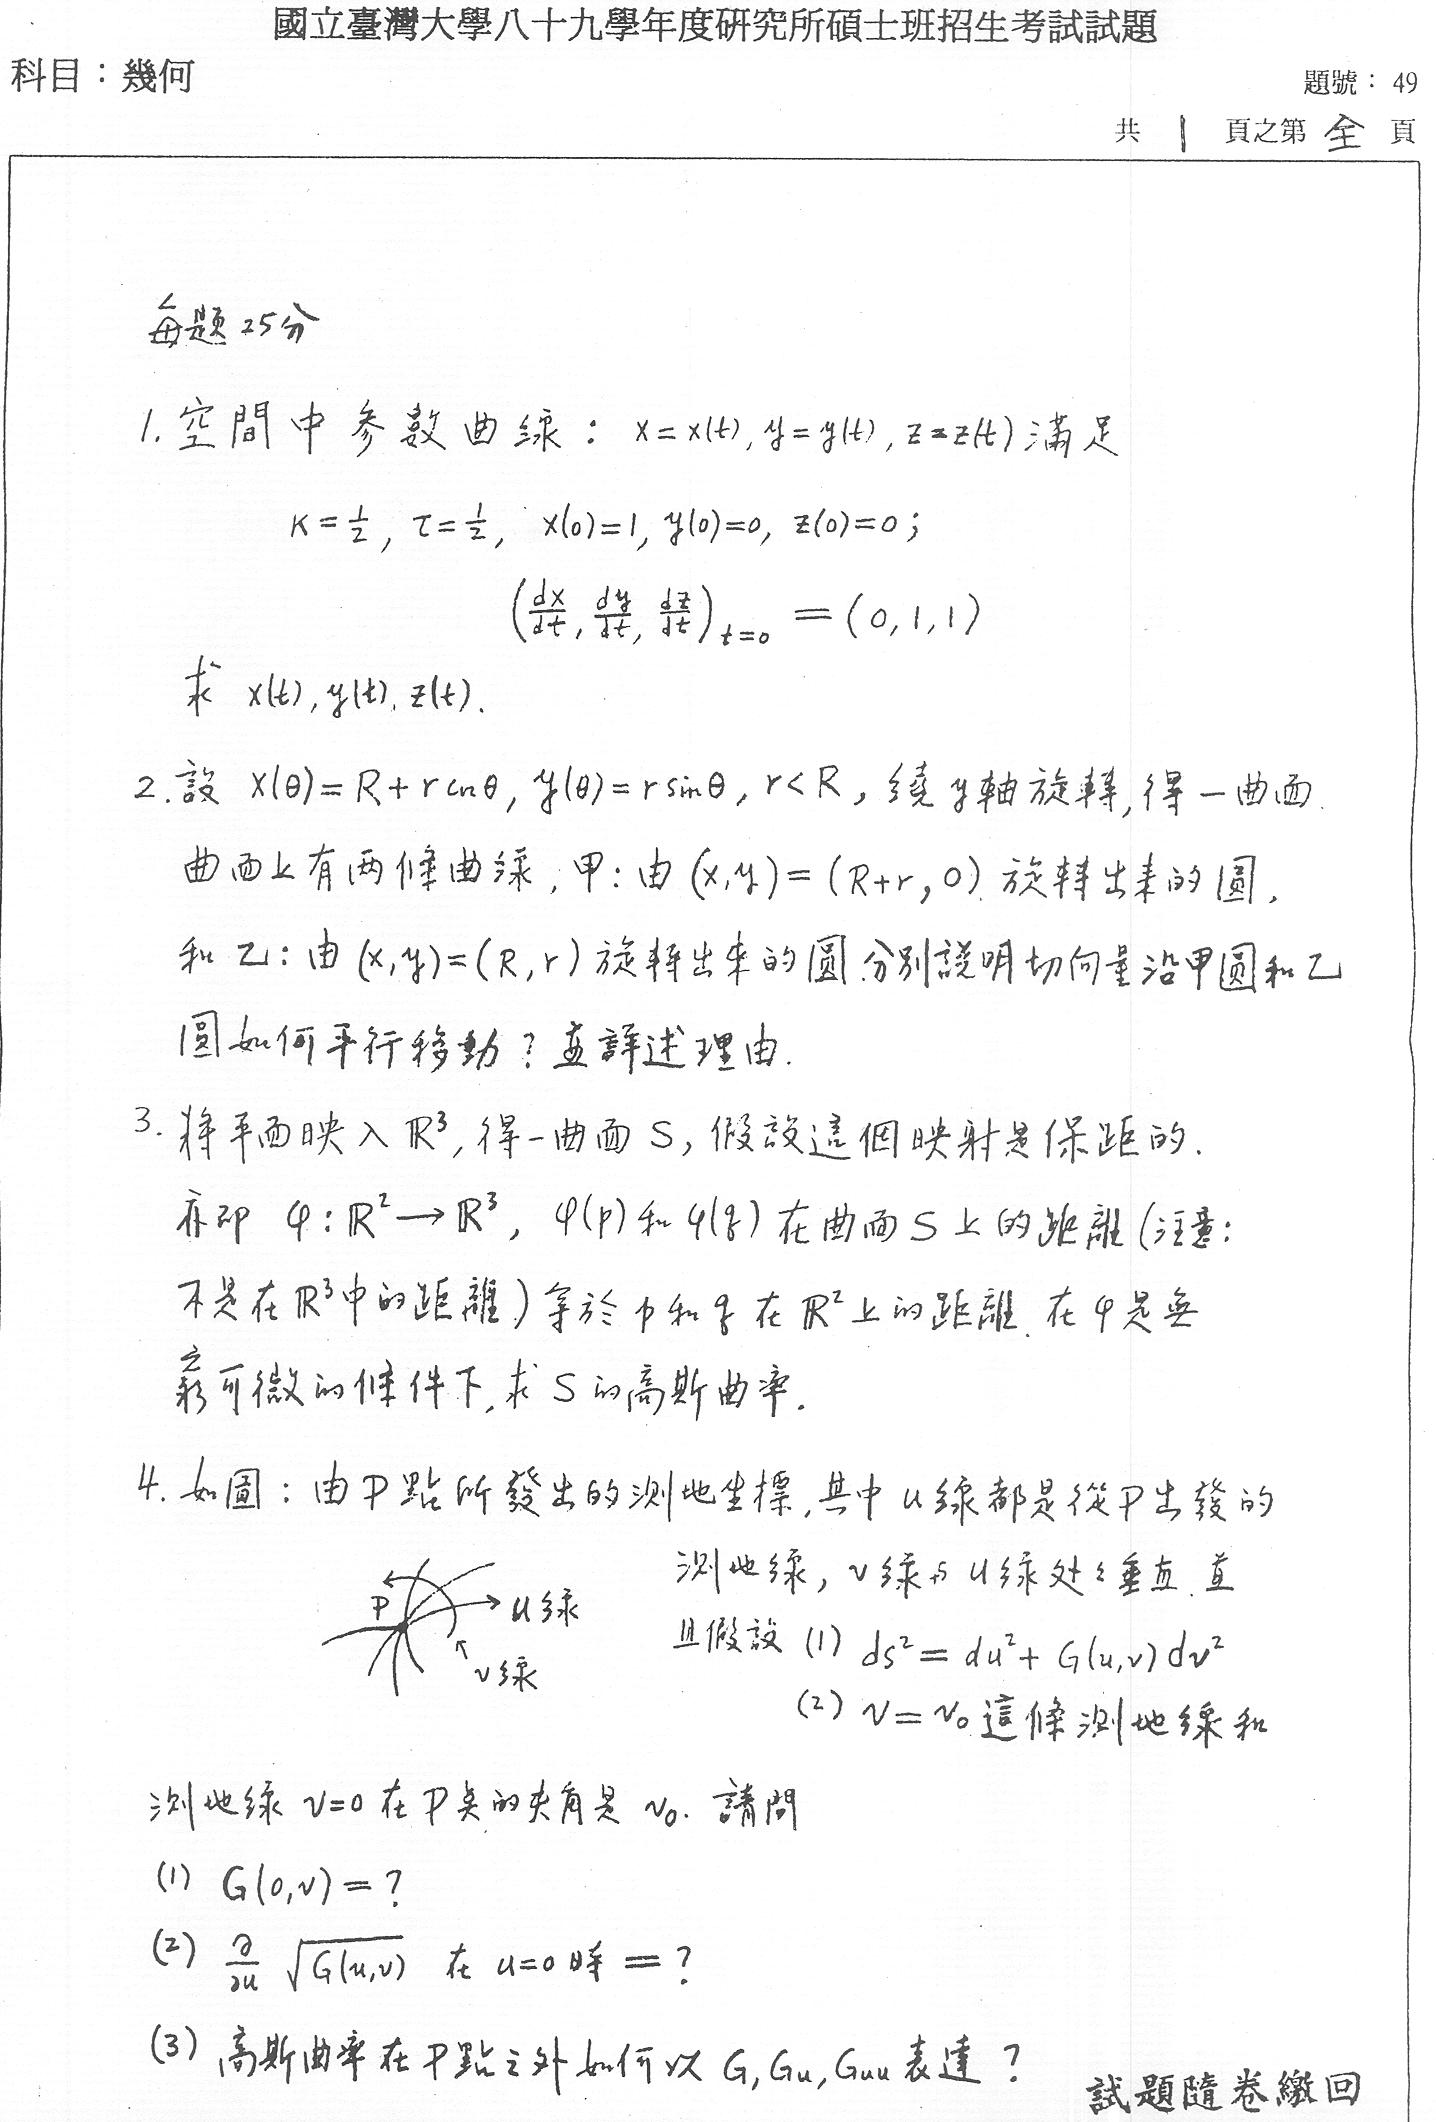 國立臺灣大學八十九學年度研究所碩士班招生考試試題
科目：幾何
題號：49
共 1 頁之第 全 頁
每題25分
1. 空間中參數曲線： x=x(t), y=y(t), z=z(t) 滿足
κ=1/2, τ=1/2, x(0)=1, y(0)=0, z(0)=0;
(dx/dt, dy/dt, dz/dt)_{t=0} = (0,1,1)
求 x(t), y(t), z(t).
2. 設 x(θ)=R+r cosθ, y(θ)=r sinθ, r<R, 繞y軸旋轉,得一曲面.
曲面上有兩條曲線, 甲: 由 (x,y)=(R+r,0) 旋轉出來的圓,
和 乙: 由 (x,y)=(R,r) 旋轉出來的圓. 分別說明切向量沿甲圓和乙
圓如何平行移動? 並詳述理由.
3. 將平面映入 ℝ³, 得一曲面 S, 假設這個映射是保距的.
亦即 φ: ℝ²→ℝ³, φ(p) 和 φ(q) 在曲面 S 上的距離 (注意:
不是在 ℝ³ 中的距離) 等於 p 和 q 在 ℝ² 上的距離. 在 φ 是無
窮可微的條件下, 求 S 的高斯曲率.
4. 如圖: 由 P 點所發出的測地坐標, 其中 u 線都是從 P 出發的
測地線, v 線与 u 線处处垂直. 並
且假設 (1) ds²=du²+G(u,v)dv²
(2) v=v₀ 這條測地線和
P
u線
v線
測地線 v=0 在 P 点的夾角是 v₀. 請問
(1) G(0,v)=?
(2) ∂/∂u √G(u,v) 在 u=0 時 =?
(3) 高斯曲率在 P 點之外如何以 G, Gu, Guu 表達?
試題隨卷繳回